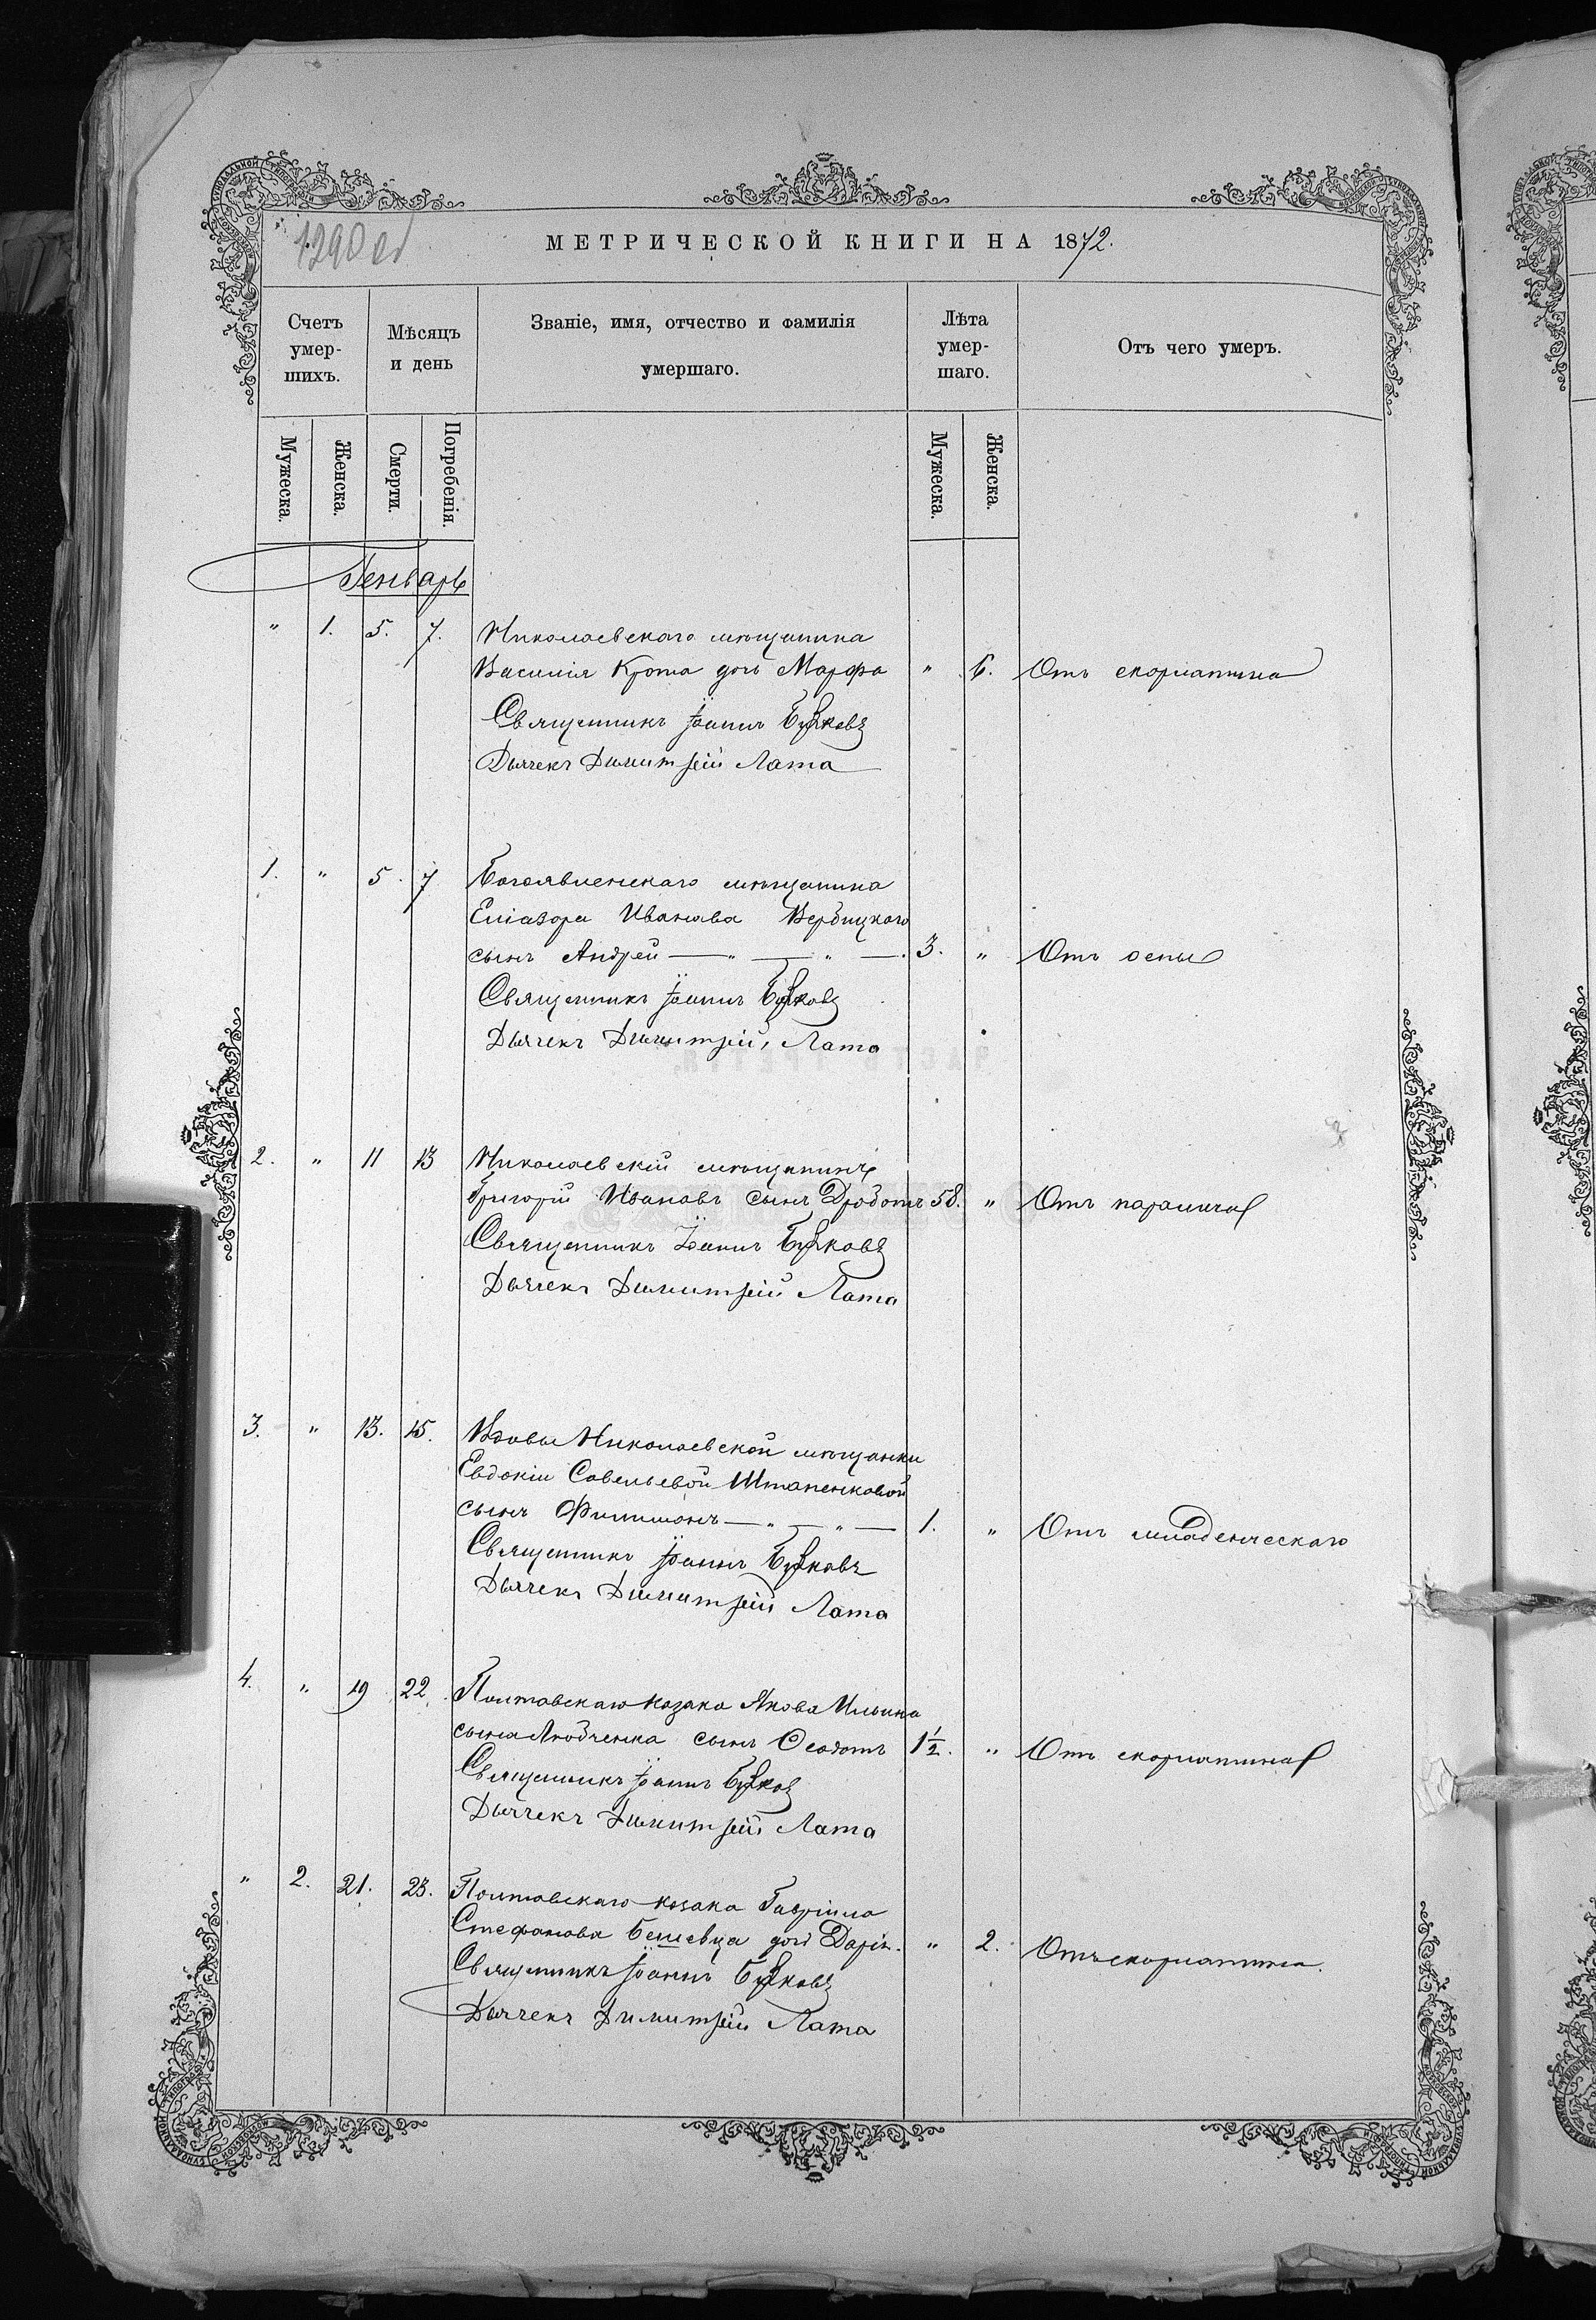 1290 об
МЕТРИЧЕСКОЙ КНИГИ НА 1872.
Счетъ умер-шихъ.
Мѣсяцъ и день
Званіе, имя, отчество и фамилія умершаго.
Лѣта умер-шаго.
Отъ чего умеръ.
Мужеска. Женска. Смерти. Погребенія. Мужеска. Женска.
Генварь
" 1. 5. 7. Николаевскаго мѣщанина
Василія Крота дочь Марфа " 6. Отъ скорлатина
Священникъ Іоаннъ
Дьячекъ Димитрій Лата
1. " 5. 7 Богоявленскаго мѣщанина
Еліазара Иванова Вербицкаго
сынъ Андрей — " — " — . 3. " Отъ оспы
Священникъ Іоаннъ
Дьячекъ Димитрій Лата
2. " 11 13 Николаевскій мѣщанинъ
Григорій Ивановъ сынъ Дроботъ 58. " Отъ паралича
Священникъ Іоаннъ
Дьячекъ Димитрій Лата
3. " 13. 15. Вдовы Николаевской мѣщанки
Евдокіи Савельевой Штапенковой
сынъ Филимонъ — " — " — 1. " Отъ младенческаго
Священникъ Іоаннъ
Дьячекъ Димитрій Лата
4. " 19 22. Полтавскаго козака Якова Ильина
сына Любченка сынъ Ѳеодотъ 1½. " Отъ скорлатина
Священникъ Іоаннъ
Дьячекъ Димитрій Лата
" 2. 21. 23. Полтавскаго козака Гавріила
Стефанова дочь Дарія. " 2. Отъ скорлатина.
Священникъ Іоаннъ
Дьячекъ Димитрій Лата